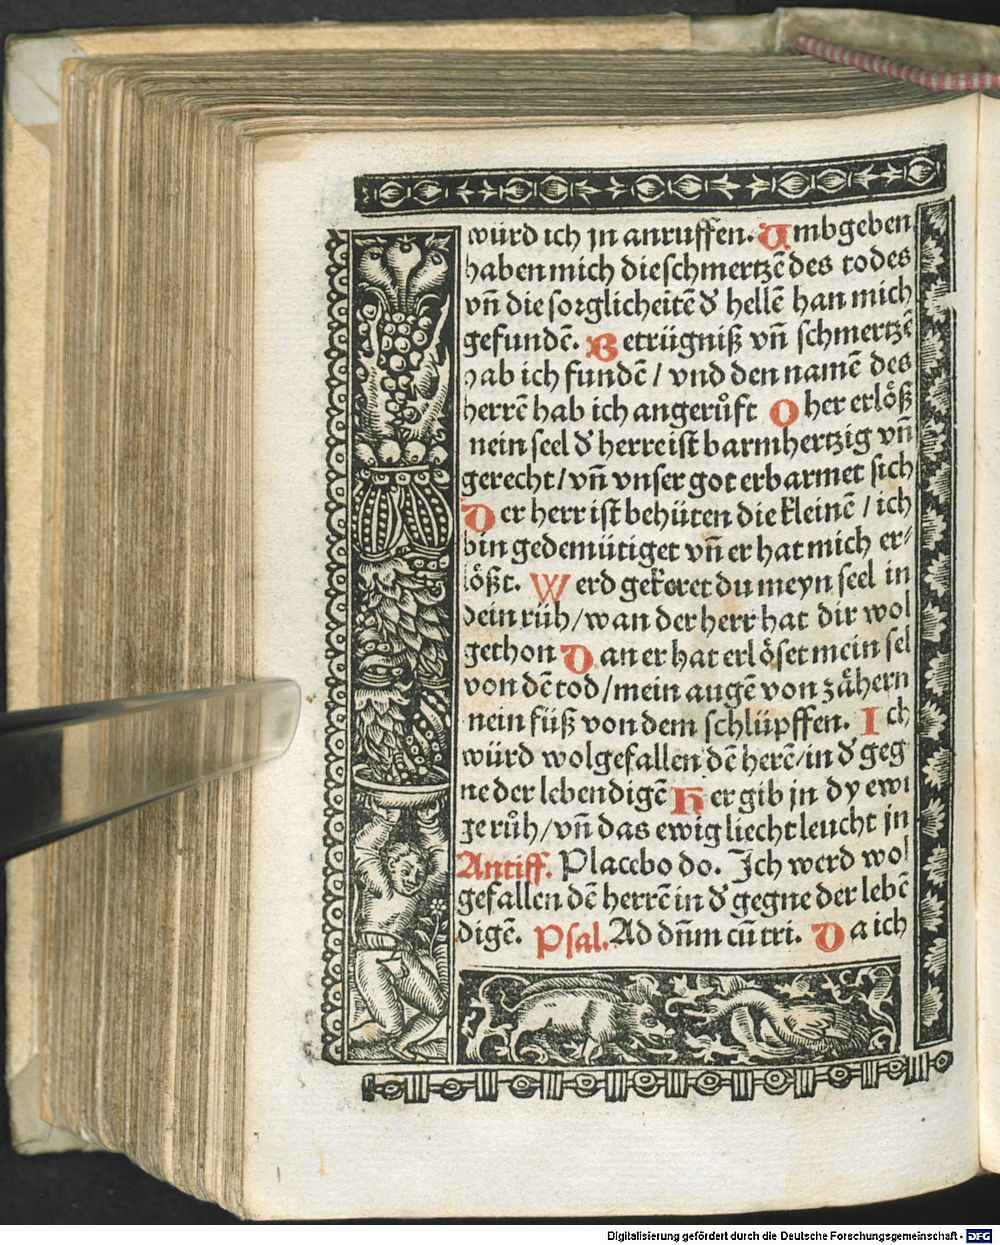 würd ich jn anruffen. Umbgeben
haben mich die schmertzē des todes
vn̄ die sorglicheitē d̕ hellē han mich
gefundē. Betrügniß vn̄ schmertzē
hab ich fundē / vnd den namē des
herrē hab ich angerůft O her erlöß
mein seel d̕ herre ist barmhertzig vn̄
gerecht / vn̄ vnser got erbarmet sich
Der herr ist behüten die kleinē / ich
bin gedemütiget vn̄ er hat mich er⸗
lößt. Werd gekeret du meyn seel in
dein rüh / wan der herr hat dir wol
gethon Dan er hat erlöset mein sel
von dē tod / mein augē von zähern
mein füß von dem schlüpffen. Ich
würd wolgefallen dē herē / in d̕ geg
ne der lebendigē Her gib jn dy ewi
ge růh / vn̄ das ewig liecht leucht jn
Antiff. Placebo do. Ich werd wol
gefallen dē herrē in d̕ gegne der lebē
digē. Psal. Ad dn̄m cū tri. Da ich
Digitalisierung gefördert durch die Deutsche Forschungsgemeinschaft - DFG